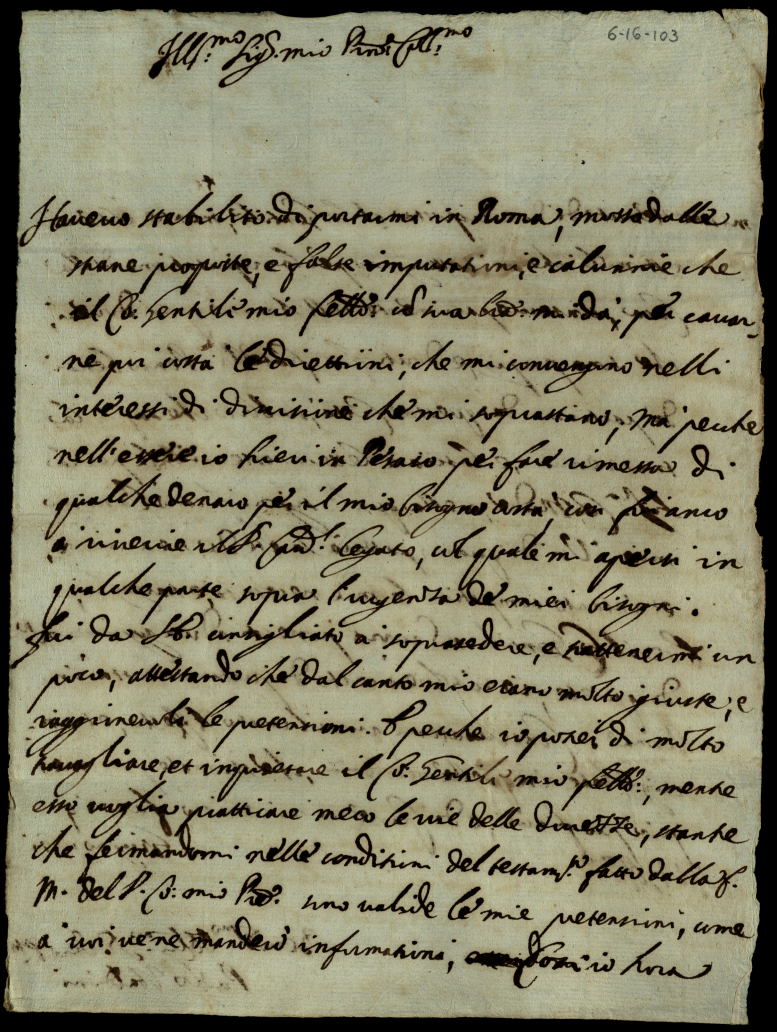 6-16-103
Ill.mo Sig.r mio P̃ron Coll.mo
Havevo stabilito di portarmi in Roma, mosso dalle
strane proposte, e false imputationi, e calunnie che
il Co: Gentile mio fratto: manda, per cavar-
ne poi costà le direttioni, che mi convengono nelli
interessi di divisione che mi soprastano, ma perche
nell'essere io hieri in Pesaro per fare rimessa di
qualche denaro per il mio bisogno costà, così fui anco
a riverire il S. Card.l Legato, col quale mi apersi in
qualche parte sopra l'urgenza de miei bisogni.
fui da S.E. consigliato a soprasedere, e trattenermi un
poco, attestando che dal canto mio erano molto giuste, e
raggionevoli le pretensioni. E perche io potrei di molto
travagliare, et inquietare il Co: Gentile mio fratto:, mentre
esso voglia pratticare meco le vie delle durezze, stante
che fermandomi nelle conditioni del testam.to fatto dalla f.
M. del S. Co: mio Pře. sono valide le mie pretensioni, come
a voi ve ne manderò informationi, io hora